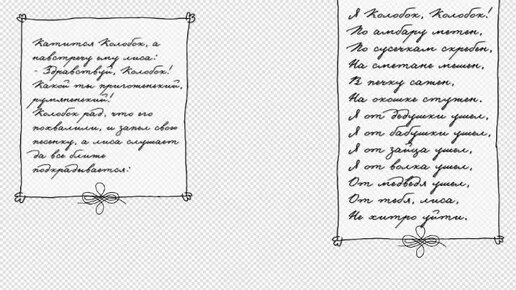 Катится Колобок, а
навстречу ему лиса:
- Здравствуй, Колобок!
Какой ты пригоженький,
румяненький!
Колобок рад, что его
похвалили, и запел свою
песенку, а лиса слушает
да все ближе
подкрадывается:
Я Колобок, Колобок!
По амбару метен,
По сусечкам скребен,
На сметане мешен,
В печку сажен,
На окошке стужен.
Я от дедушки ушел,
Я от бабушки ушел,
Я от зайца ушел,
Я от волка ушел,
От медведя ушел,
От тебя, лиса,
Не хитро уйти.